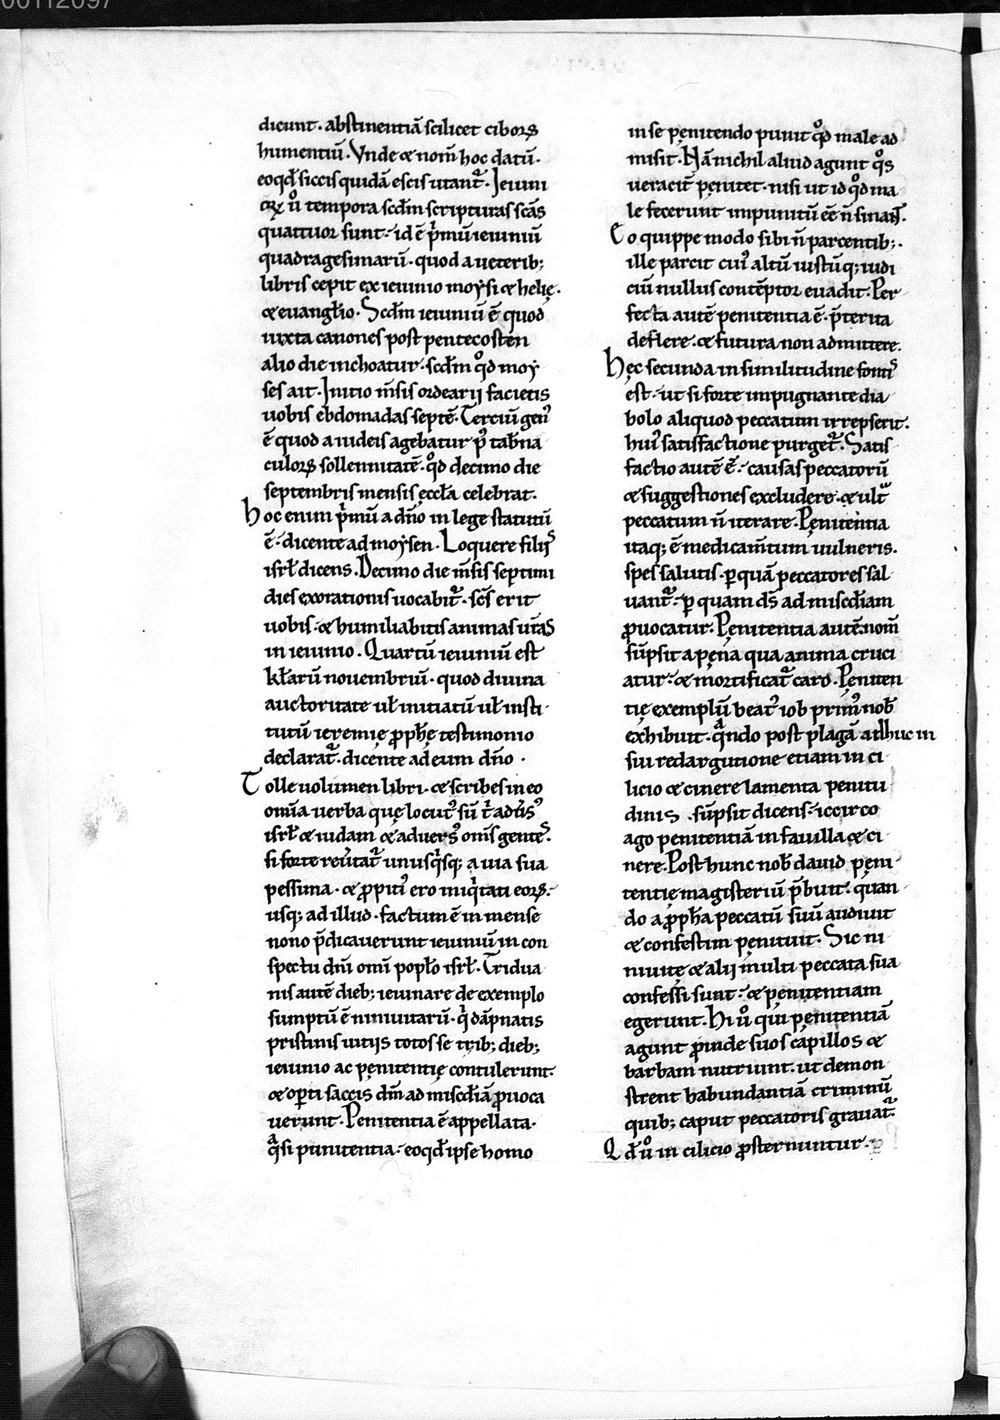 00112097
dicunt· abstinentiā scilicet ciboꝝ
humentiū· Vnde ⁊ nom̄ hoc datū·
eoqđ siccis quidā escis utant᷑· Ieiuni
orꝝ ů tempora scđm scripturas scās
quattuor sunt· id ē p̄mū ieiuniū
quadragesimarū· quod a ueterib;
libris cepit ex ieiunio moẏsi ⁊ helię·
⁊ euanglio· Scđm ieiuniū ē quod
iuxta canones post pentecosten
alio die inchoatur· scđm qͦd moẏ
ses ait· Initio m̄sis ordearij facietis
uobis ebdomadas septē· Terciū gen᷒
ē quod a iudeis agebatur p᷒ tab̄na
culoꝝ sollennitatē· qͦd decimo die
septembris mensis ęccłā celebrat·
hoc enim p̄mū a dn̄o in lege statutū
ē· dicente ad moẏsen· Loquere filijs
isrł dicens· Decimo die m̄sis septimi
dies exorationis uocabit᷑· sc̄s erit
uobis· ⁊ humiliabitis animas ur̄as
in ieiunio· Quartū ieiuniū est
kłarū nouembriū· quod diuina
auctoritate uł initiatū uł insti
tutū ieremię ꝓph̄ę testimonio
declarat᷑· dicente ad eum dn̄o·
Tolle uolumen libri· ⁊ scribes in eo
om̄ia uerba quę locut᷒ sū t̄ aduers᷒
isrł ⁊ iudam ⁊ aduers᷒ om̄s gentes·
si forte reu̇tat᷑ unusq̇sq; a uia sua
pessima· ⁊ ꝓpiti᷒ ero iniq̇tati eoꝝ·
usq; ad illud· factum ē in mense
nono p̄dicauerunt ieiuniū in con
spectu dn̄i om̄i popło isrł· Tridua
nis autē dieb; ieiunare de exemplo
sumptū ē niniuitarū· q̇ dāpnatis
pristinis uitijs totos se trib; dieb;
ieiunio ac pęnitentię contulerunt·
⁊ oꝑti saccis dm̄ ad misc̄diā ꝓuoca
uerunt· Penitentia ē appellata·
qͣsi punitentia· eoqđ ipse homo
in se pęnitendo punit qͦd male ad
misit· Nā nichil aliud agunt qͦs
ueracit᷑ pęnitet· nisi ut id qͦd ma
le fecerunt impunitū eē n̄ sinant·
Eo quippe modo sibi n̄ parcentib;·
ille parcit cui᷒ altū iustūq; iudi
ciū nullus contēptor euadit· Per
fecta autē penitentia ē· p̄terita
deflere· ⁊ futura non admittere·
hęc secunda in similitudine fontis
est· ut si forte impugnante dia
bolo aliquod peccatum irrepserit·
hui᷒ satisfactione purget᷑· Satis
factio autē ē· causas peccatorū
⁊ suggestiones excludere· ⁊ ultͣ
peccatum n̄ iterare· Pęnitentia
itaq; ē medicam̄tum uulneris·
spes salutis· ꝑ quā peccatores sal
uant᷑· ꝑ quam ds̄ ad misc̄diam
ꝓuocatur· Pęnitentia autē nom̄
sūpsit a pęna qua anima cruci
atur· ⁊ mortificat᷑ caro· Pęniten
tię exemplū beat᷒ iob prim᷒ nob̄
exhibuit· qͣndo post plagā adhuc in
sui redargutione etiam in ci
licio ⁊ cinere lamenta penitu
dinis sūpsit dicens· iccirco
ago penitentiā in fauilla ⁊ ci
nere· Post hunc nob̄ dauid pęni
tentię magisteriū p̄buit· quan
do a ꝓph̄a peccatū suū audiuit
⁊ confestim pęnituit· Sic ni
niuitę ⁊ alij multi peccata sua
confessi sunt· ⁊ penitentiam
egerunt· hi ů qui pęnitentiā
agunt ꝓinde suos capillos ⁊
barbam nutriunt· ut demon
strent habundantiā criminū
quib; caput peccatoris grauat᷑
Qđ ů in cilicio ꝓsternuntur·